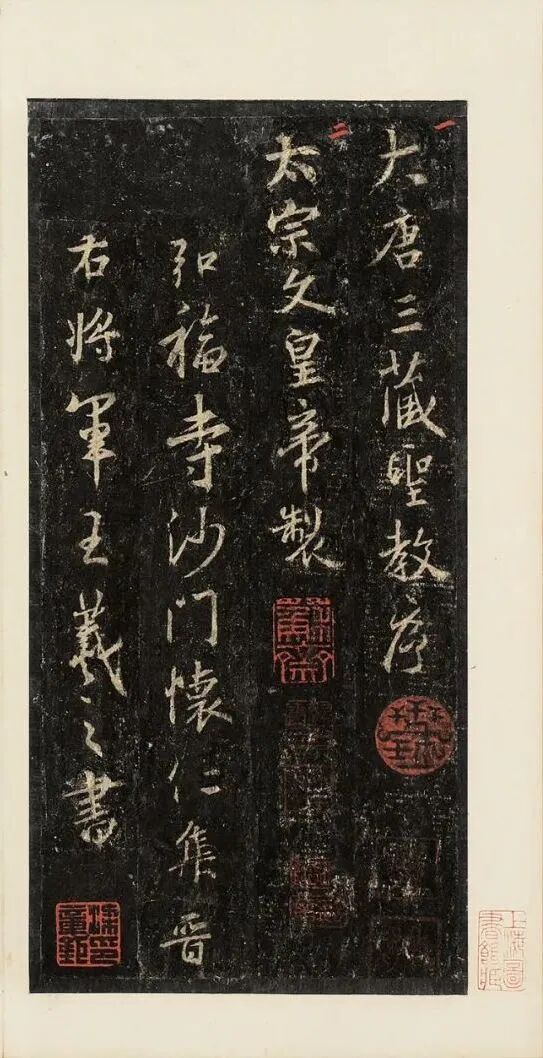 大唐三藏聖教序
太宗文皇帝製
弘福寺沙門懷仁集晉
右將軍王羲之書
一
二
上海圖書館藏